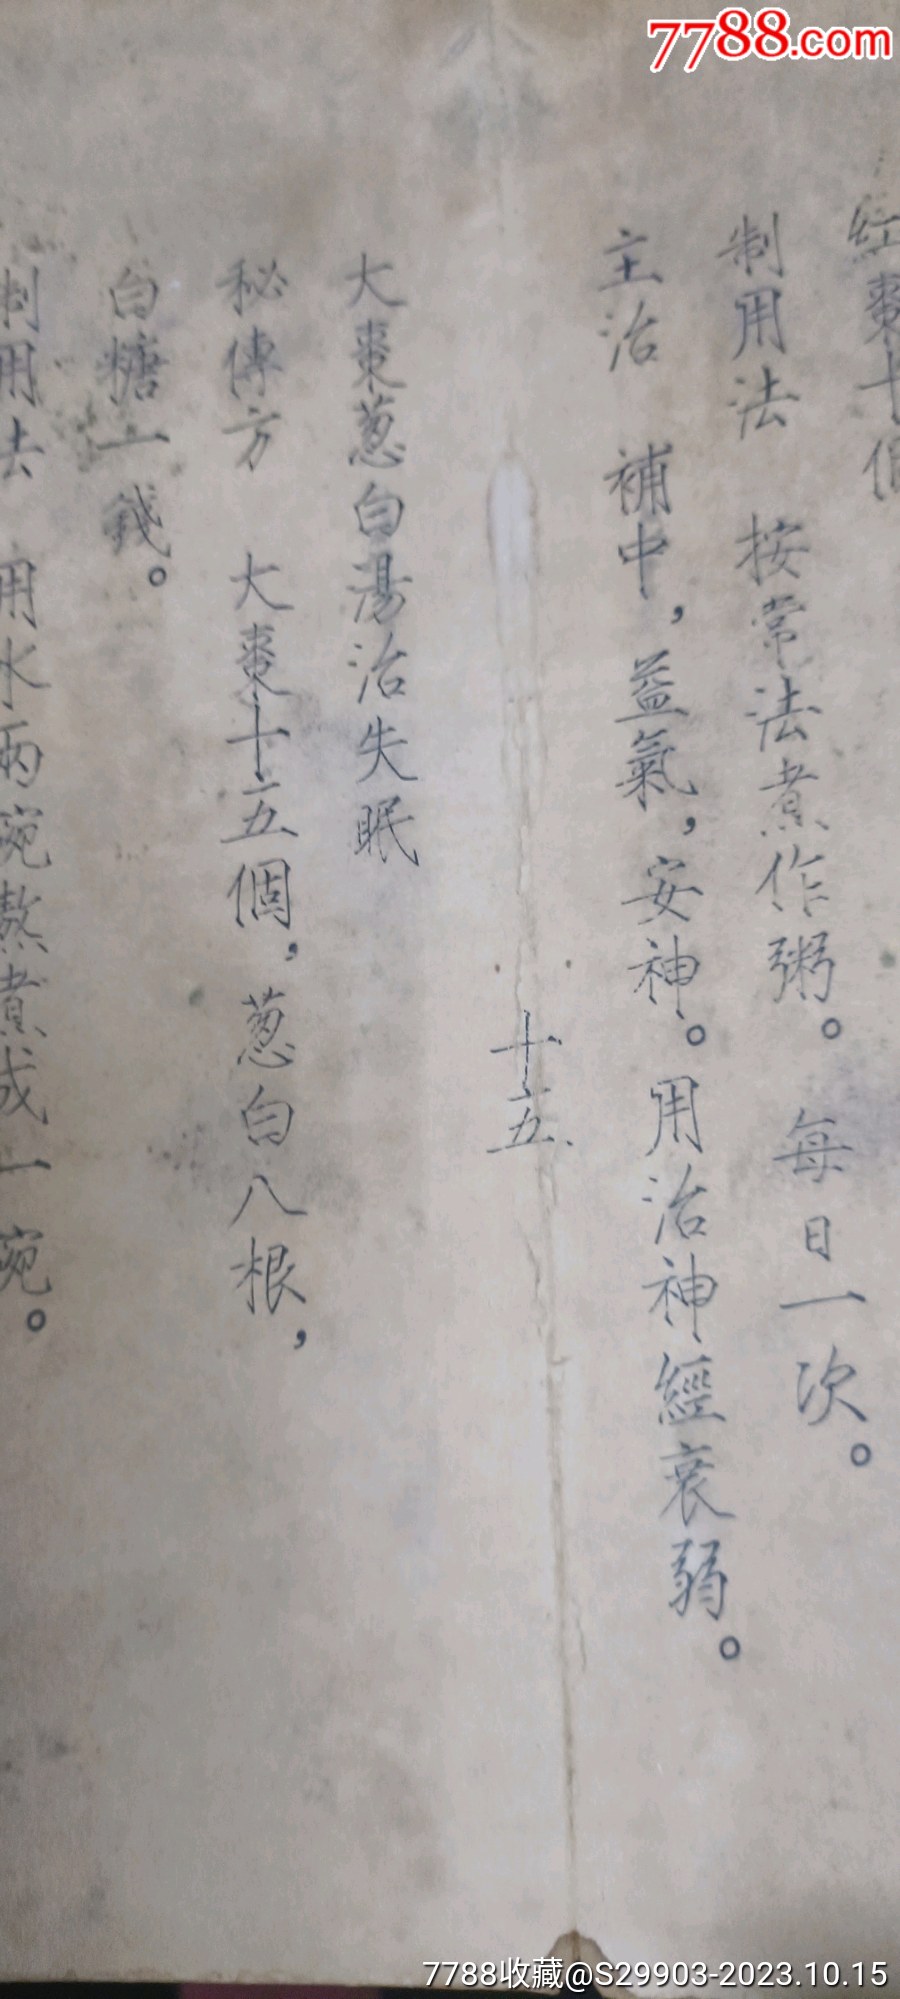 7788.com
紅棗十個
制用法 按常法煮作粥。每日一次。
主治 補中，益氣，安神。用治神經衰弱。
十五
大棗葱白湯治失眠
秘傳方 大棗十五個，葱白八根，
白糖一錢。
制用法 用水兩碗熬煮成一碗。
7788收藏@S29903-2023.10.15